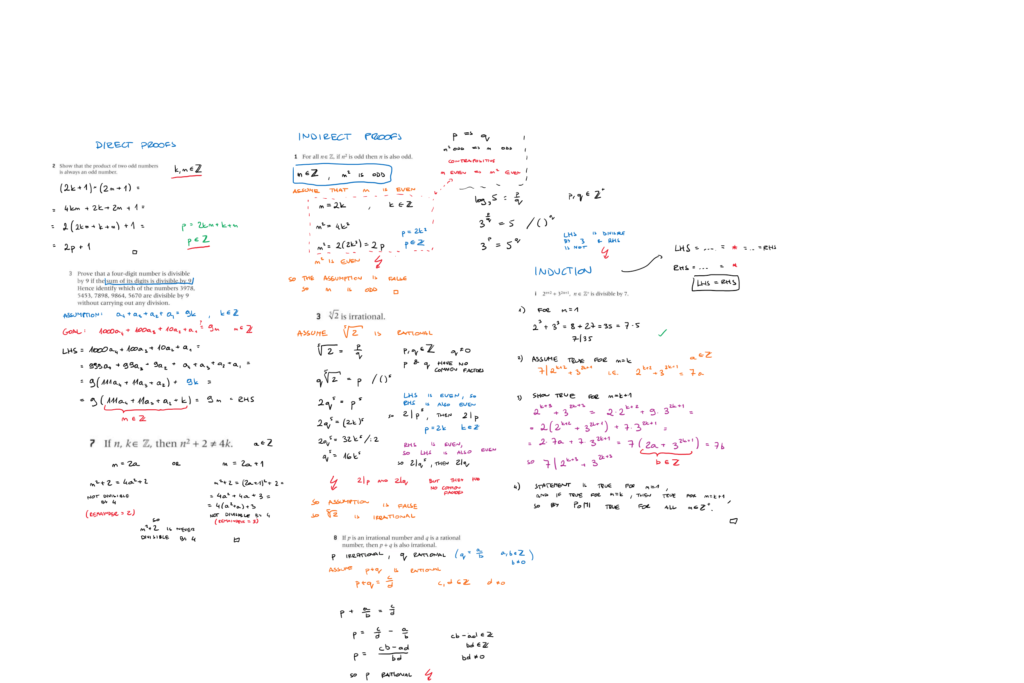 DIRECT PROOFS
2 Show that the product of two odd numbers
is always an odd number.
k, n ∈ ℤ
(2k+1)·(2n+1) =
= 4kn + 2k + 2n + 1 =
= 2(2kn + k + n) + 1 =
p = 2kn + k + n
p ∈ ℤ
= 2p + 1
□
3 Prove that a four-digit number is divisible
by 9 if the sum of its digits is divisible by 9.
Hence identify which of the numbers 3978,
5453, 7898, 9864, 5670 are divisible by 9
without carrying out any division.
ASSUMPTION: a₄ + a₃ + a₂ + a₁ = 9k , k ∈ ℤ
GOAL: 1000a₄ + 100a₃ + 10a₂ + a₁ = 9m m ∈ ℤ
LHS = 1000a₄ + 100a₃ + 10a₂ + a₁ =
= 999a₄ + 99a₃ + 9a₂ + a₄ + a₃ + a₂ + a₁ =
= 9(111a₄ + 11a₃ + a₂) + 9k =
= 9(111a₄ + 11a₃ + a₂ + k) = 9m = RHS
m ∈ ℤ
7 If n, k ∈ ℤ, then n² + 2 ≠ 4k. a ∈ ℤ
n = 2a OR n = 2a+1
n²+2 = 4a²+2
NOT DIVISIBLE
BY 4
(REMAINDER = 2)
n²+2 = (2a+1)²+2 =
= 4a² + 4a + 3 =
= 4(a²+a) + 3
NOT DIVISIBLE BY 4
(REMAINDER = 3)
SO
n²+2 IS NEVER
DIVISIBLE BY 4
□
INDIRECT PROOFS
1 For all n ∈ ℤ, if n² is odd then n is also odd.
n ∈ ℤ , n² IS ODD
ASSUME THAT n IS EVEN
n = 2k , k ∈ ℤ
n² = 4k²
p = 2k²
n² = 2(2k²) = 2p p ∈ ℤ
n² IS EVEN
SO THE ASSUMPTION IS FALSE
SO n IS ODD □
p ⇒ q
n² ODD ⇒ n ODD
CONTRAPOSITIVE
n EVEN ⇒ n² EVEN
log₃5 = p/q p, q ∈ ℤ⁺
3^(p/q) = 5 / ()^q
3^p = 5^q
LHS IS DIVISIBLE
BY 3 & RHS
IS NOT
3 ⁵√2 is irrational.
ASSUME ⁵√2 IS RATIONAL
⁵√2 = p/q p, q ∈ ℤ q ≠ 0
p & q HAVE NO
COMMON FACTORS
q ⁵√2 = p / ()⁵
2q⁵ = p⁵
LHS IS EVEN, SO
RHS IS ALSO EVEN
SO 2|p⁵, THEN 2|p
p = 2k k ∈ ℤ
2q⁵ = (2k)⁵
2q⁵ = 32k⁵ /:2
q⁵ = 16k⁵
RHS IS EVEN,
SO LHS IS ALSO EVEN
SO 2|q⁵, THEN 2|q
2|p AND 2|q BUT THEY HAD
NO COMMON
FACTORS
SO ASSUMPTION IS FALSE
SO ⁵√2 IS IRRATIONAL
8 If p is an irrational number and q is a rational
number, then p + q is also irrational.
p IRRATIONAL , q RATIONAL (q = a/b a, b ∈ ℤ
b ≠ 0)
ASSUME p+q IS RATIONAL
p+q = c/d c, d ∈ ℤ d ≠ 0
p + a/b = c/d
p = c/d - a/b
p = (cb - ad)/bd
cb - ad ∈ ℤ
bd ∈ ℤ
bd ≠ 0
SO p RATIONAL
INDUCTION
LHS = ... = * = ... = RHS
RHS = ... = *
LHS = RHS
1 2ⁿ⁺² + 3²ⁿ⁺¹, n ∈ ℤ⁺ is divisible by 7.
1) FOR n=1
2³ + 3³ = 8 + 27 = 35 = 7·5
7|35
2) ASSUME TRUE FOR n=k a ∈ ℤ
7|2ᵏ⁺² + 3²ᵏ⁺¹ i.e. 2ᵏ⁺² + 3²ᵏ⁺¹ = 7a
3) SHOW TRUE FOR n=k+1
2ᵏ⁺³ + 3²ᵏ⁺³ = 2·2ᵏ⁺² + 9·3²ᵏ⁺¹ =
= 2(2ᵏ⁺² + 3²ᵏ⁺¹) + 7·3²ᵏ⁺¹ =
= 2·7a + 7·3²ᵏ⁺¹ = 7(2a + 3²ᵏ⁺¹) = 7b
b ∈ ℤ
SO 7|2ᵏ⁺³ + 3²ᵏ⁺³
4) STATEMENT IS TRUE FOR n=1,
AND IF TRUE FOR n=k, THEN TRUE FOR n=k+1,
SO BY PoMI TRUE FOR ALL n ∈ ℤ⁺.
□